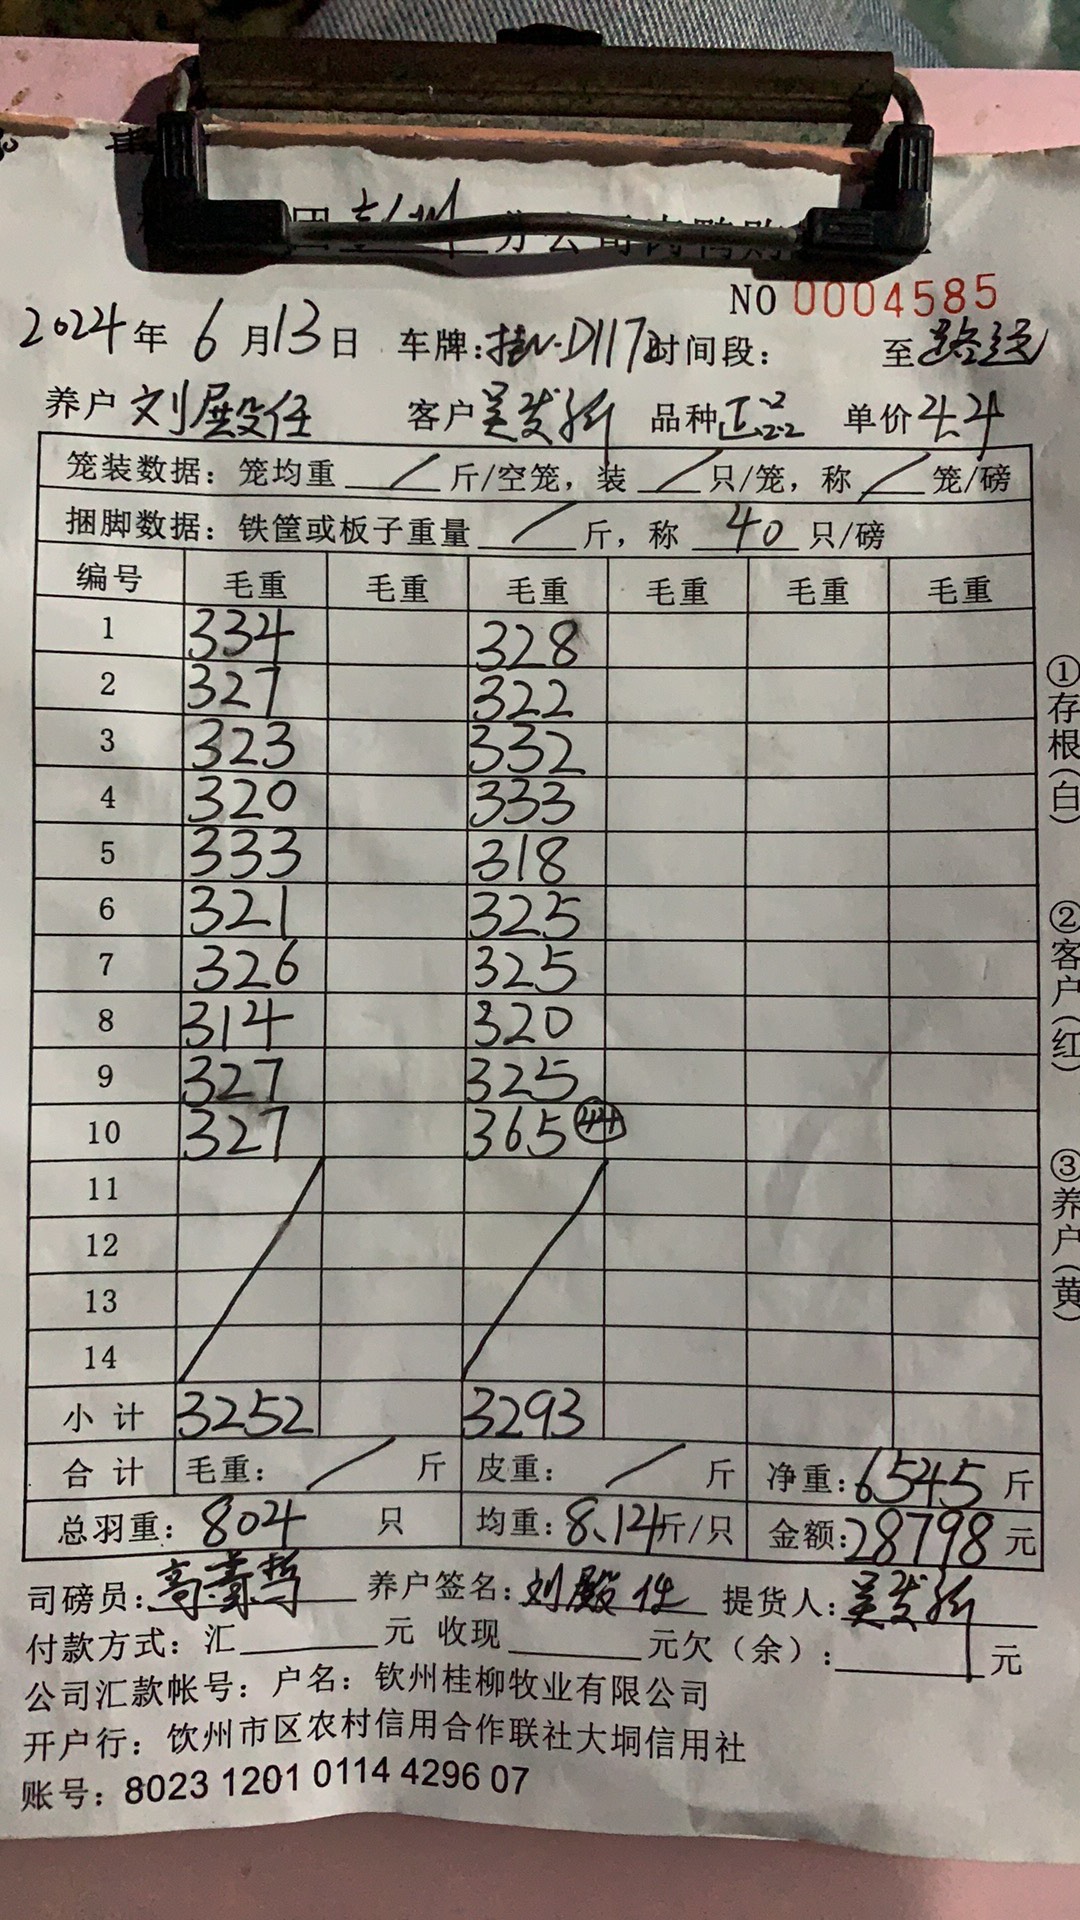 分公司肉鸭购
NO 0004585
2024年 6月13日 车牌:桂N·D117 时间段: 至
养户 刘殿任 客户 吴发新 品种 正品2.2 单价 4.4
笼装数据: 笼均重 / 斤/空笼, 装 / 只/笼, 称 / 笼/磅
捆脚数据: 铁筐或板子重量 / 斤, 称 40 只/磅
编号 毛重 毛重 毛重 毛重 毛重 毛重
1 334 328
2 327 322
3 323 332
4 320 333
5 333 318
6 321 325
7 326 325
8 314 320
9 327 325
10 327 365 44
11
12
13
14
小计 3252 3293
合计 毛重: / 斤 皮重: / 斤 净重: 6545 斤
总羽重: 804 只 均重: 8.14斤/只 金额: 28798 元
司磅员: 养户签名: 刘殿任 提货人: 吴发新
付款方式: 汇 元 收现 元欠(余): 元
公司汇款帐号: 户名: 钦州桂柳牧业有限公司
开户行: 钦州市区农村信用合作联社大垌信用社
账号: 8023 1201 0114 4296 07
①存根(白) ②客户(红) ③养户(黄)